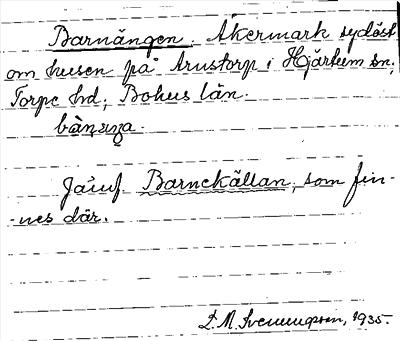 Barnängen. Åkermark sydöst
om husen på Arustorp i Hjärtum sn,
Torpe hd, Bohus län.
Jämf. Barnekällan, som fin-
-nes där.
L. M. Svenungsson, 1935.